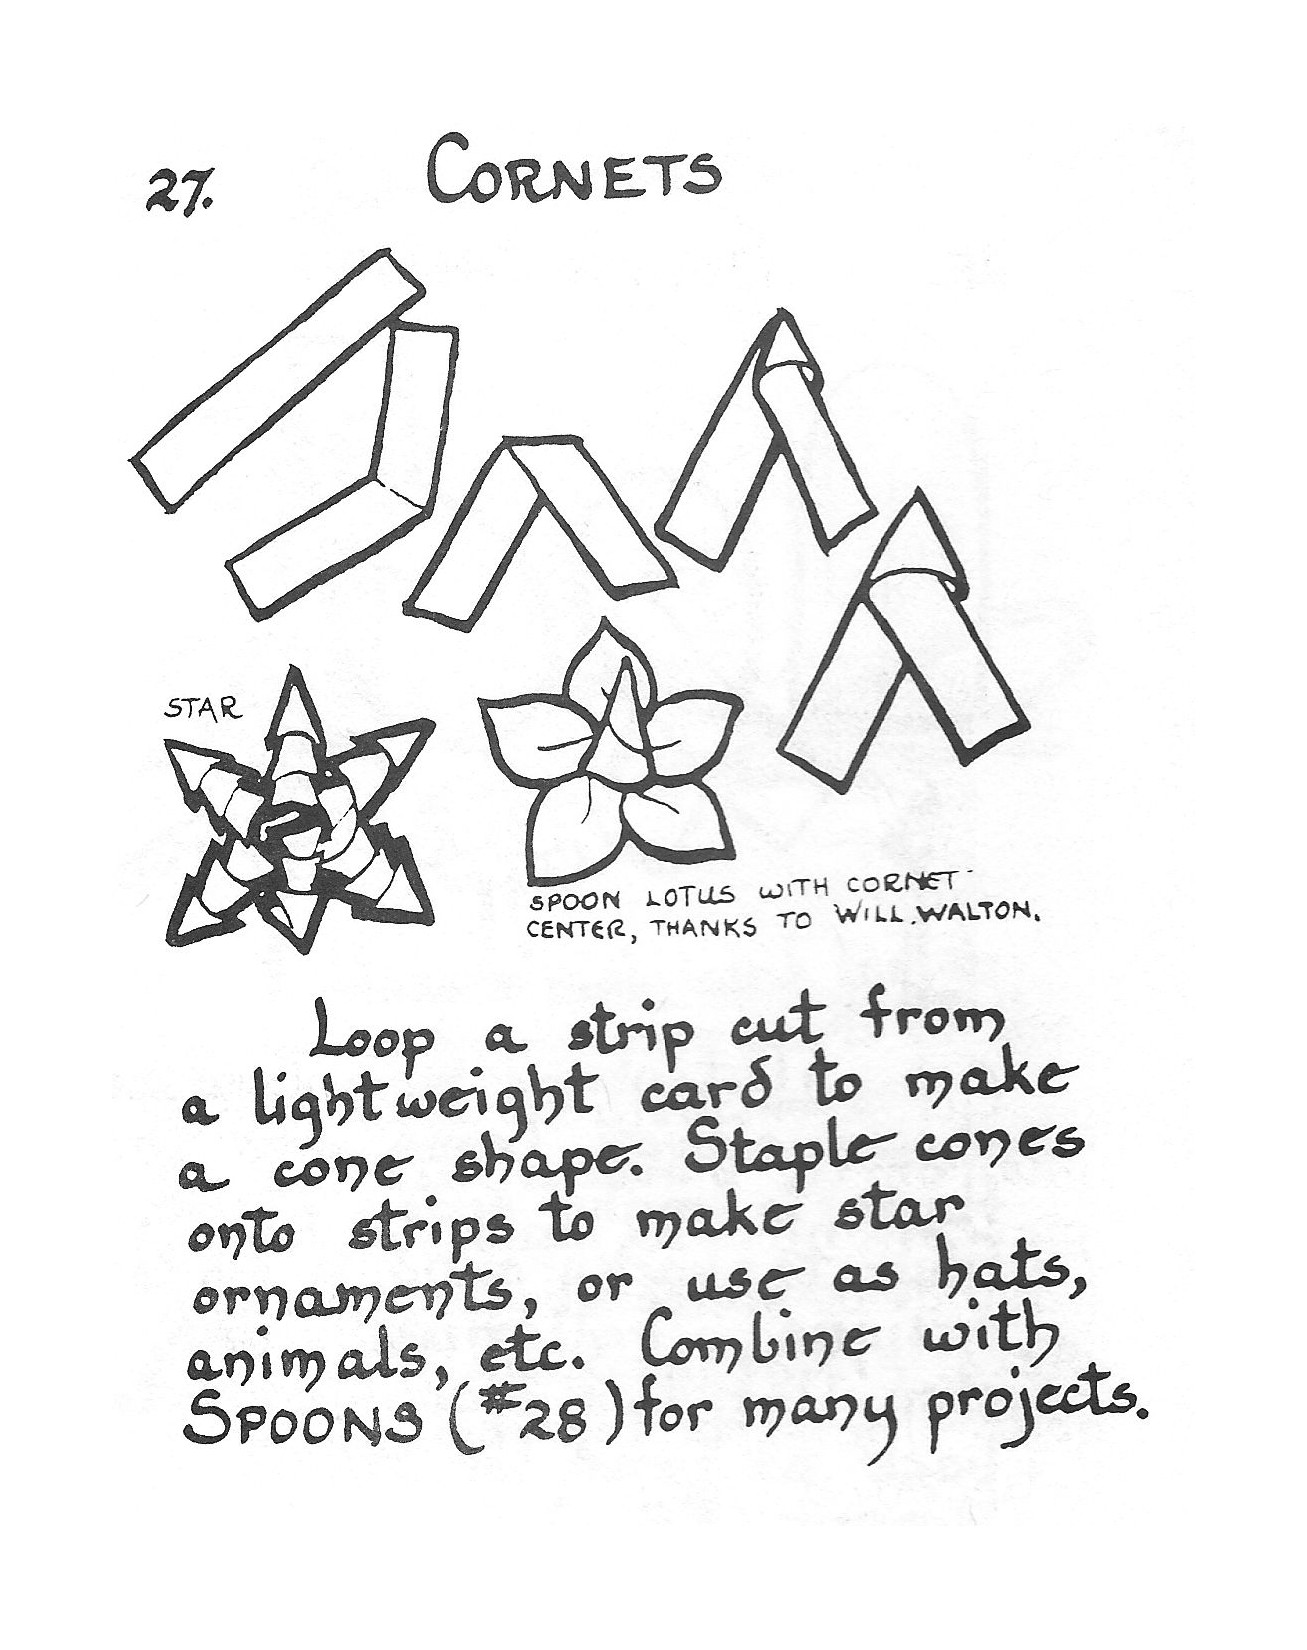 27.
CORNETS
STAR
SPOON LOTUS WITH CORNET
CENTER, THANKS TO WILL WALTON.
Loop a strip cut from
a lightweight card to make
a cone shape. Staple cones
onto strips to make star
ornaments, or use as hats,
animals, etc. Combine with
SPOONS (#28) for many projects.